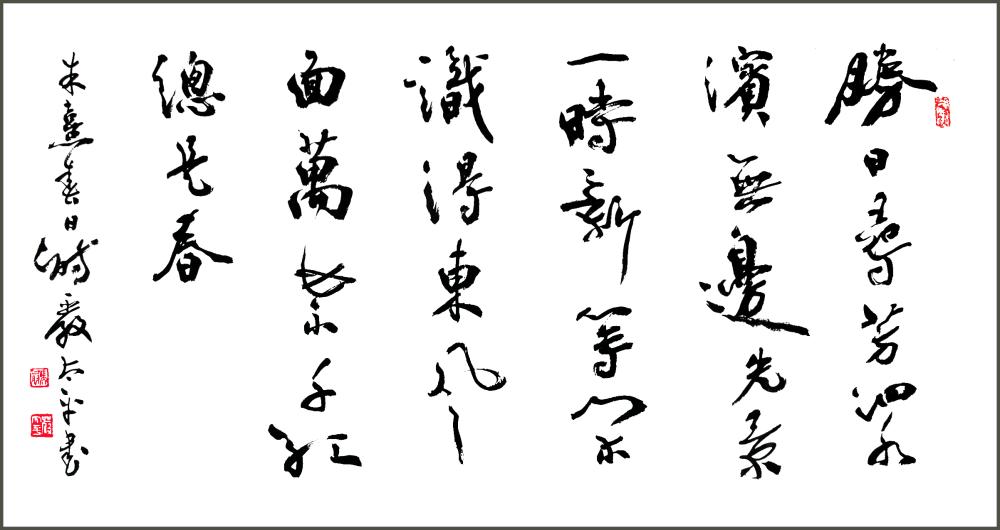 勝日尋芳泗水
濱無邊光景
一時新等閑
識得東風
面萬紫千紅
總是春
朱熹春日詩太平书